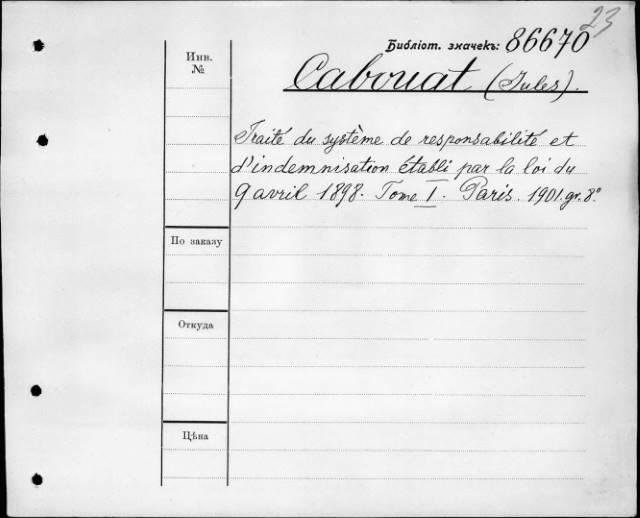 23
Библіот. значекъ: 86670
Инв.
№
Cabouat (Jules).
Traité du système de responsabilité et
d'indemnisation établi par la loi du
9 avril 1898. Tome I. Paris. 1901. gr. 8°
По заказу
Откуда
Цѣна